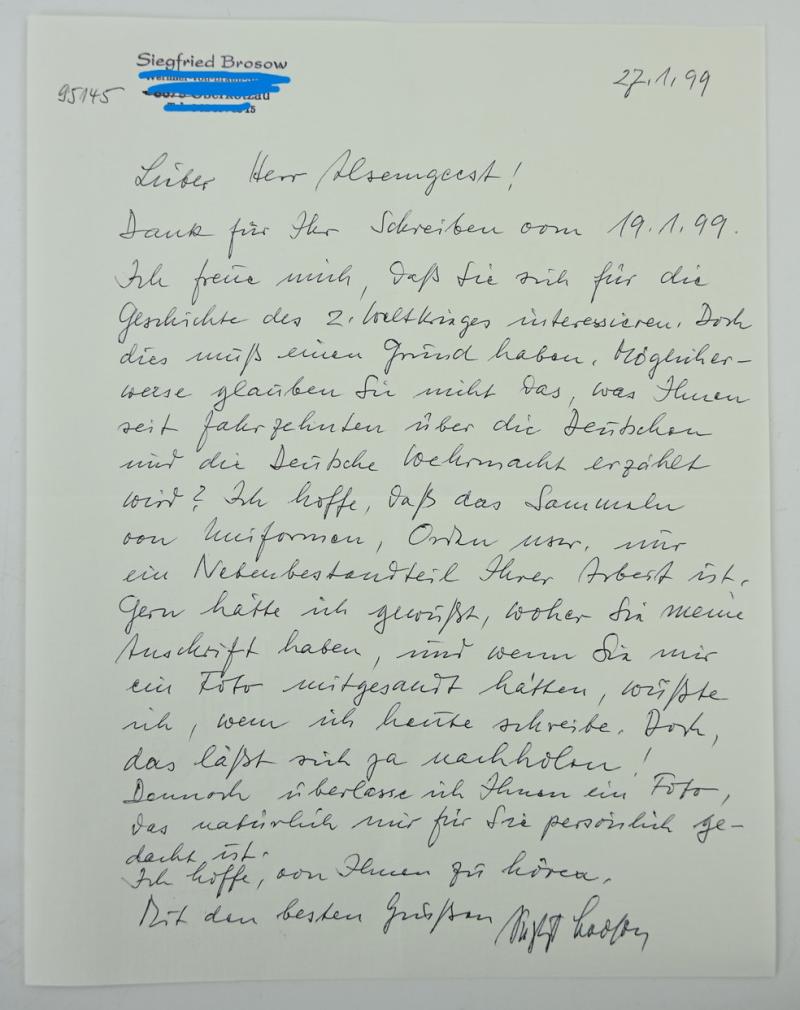 Siegfried Brosow
95145
Oberkotzau
27.1.99
Lieber Herr Alsemgeest!
Dank für Ihr Schreiben vom 19.1.99.
Ich freue mich, daß Sie sich für die
Geschichte des 2. Weltkrieges interessieren. Doch
dies muß einen Grund haben. Möglicher-
weise glauben Sie nicht das, was Ihnen
seit Jahrzehnten über die Deutschen
und die Deutsche Wehrmacht erzählt
wird? Ich hoffe, daß das Sammeln
von Uniformen, Orden usw. nur
ein Nebenbestandteil Ihrer Arbeit ist.
Gern hätte ich gewußt, woher Sie meine
Anschrift haben, und wenn Sie mir
ein Foto mitgesandt hätten, wüßte
ich, wem ich heute schreibe. Doch,
das läßt sich ja nachholen!
Dennoch überlasse ich Ihnen ein Foto,
das natürlich nur für Sie persönlich ge-
dacht ist.
Ich hoffe, von Ihnen zu hören.
Mit den besten Grüßen